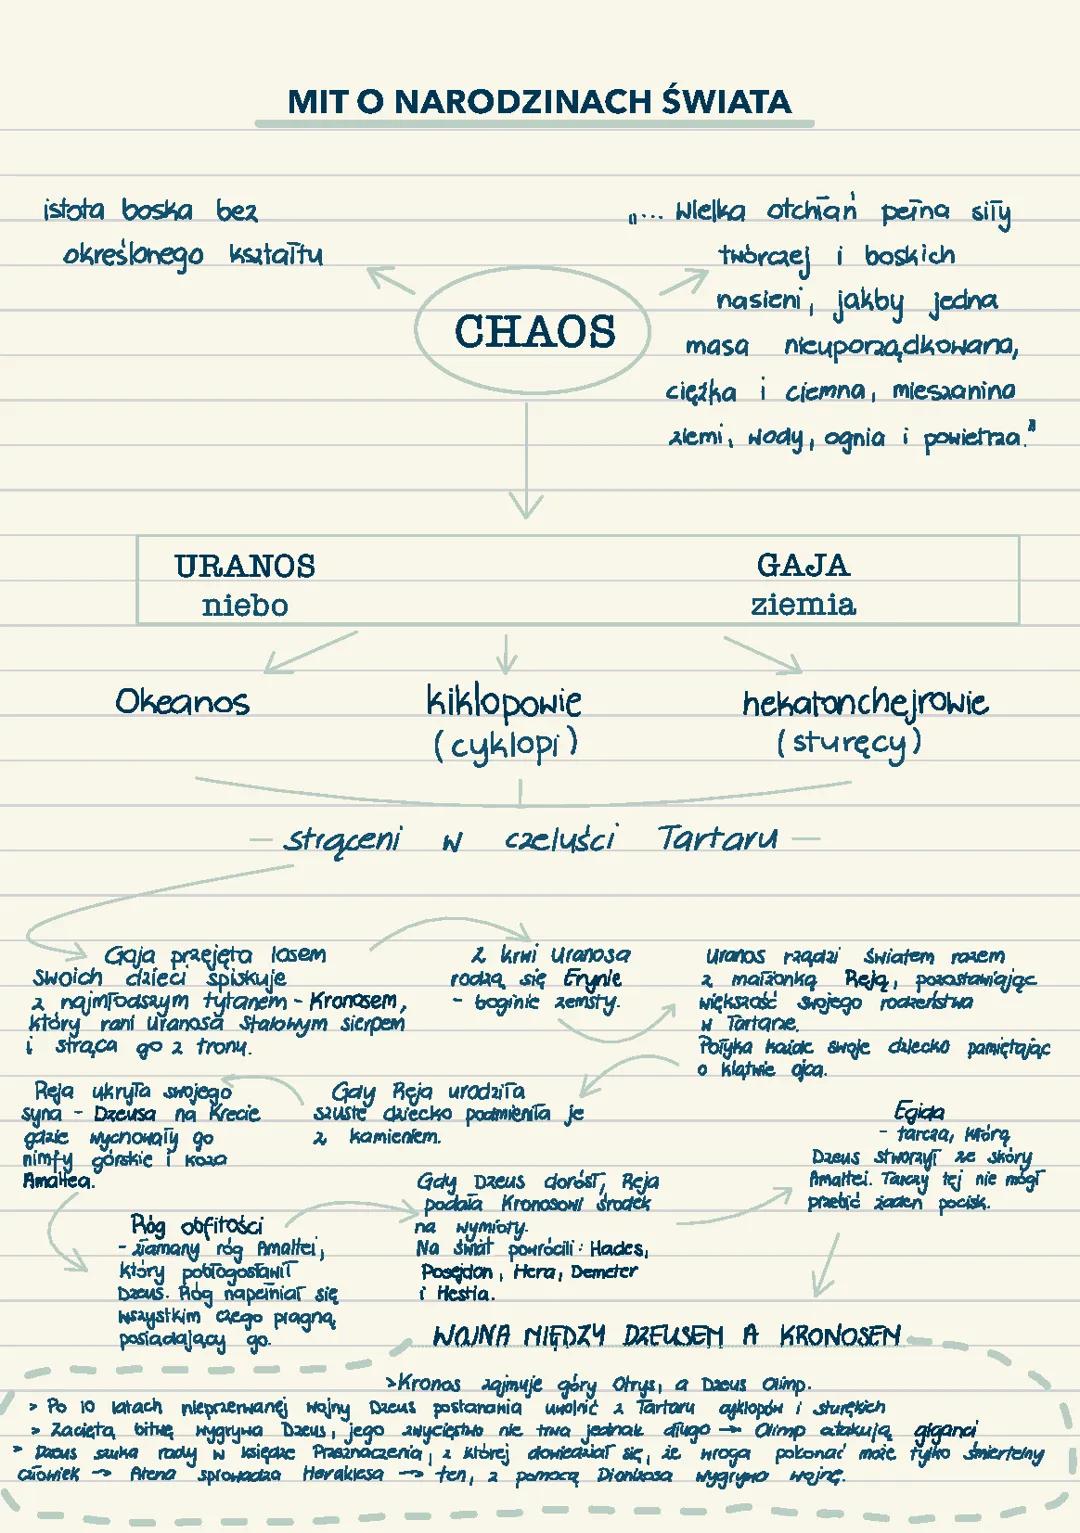 MIT O NARODZINACH ŚWIATA
istota boska bez
określonego kształtu
„... Wielka otchłań pełna siły
twórczej i boskich
nasieni, jakby jedna
masa nieuporządkowana,
ciężka i ciemna, mieszanina
ziemi, wody, ognia i powietrza."
CHAOS
URANOS
niebo
GAJA
ziemia
Okeanos
kiklopowie
(cyklopi)
hekatonchejrowie
(sturęcy)
- strąceni w czeluści Tartaru -
Gaja przejęta losem
swoich dzieci spiskuje
z najmłodszym tytanem - Kronosem,
który rani Uranosa stalowym sierpem
i strąca go z tronu.
Z krwi Uranosa
rodzą się Erynie
- boginie zemsty.
Uranos rządzi światem razem
z małżonką Reją, pozostawiając
większość swojego rodzeństwa
w Tartarze.
Połyka każde swoje dziecko pamiętając
o klątwie ojca.
Gdy Reja urodziła
szóste dziecko podmieniła je
z kamieniem.
Reja ukryła swojego
syna - Dzeusa na Krecie
gdzie wychowały go
nimfy górskie i koza
Amaltea.
Róg obfitości
- złamany róg Amaltei,
który pobłogosławił
Dzeus. Róg napełniał się
wszystkim czego pragną
posiadający go.
Gdy Dzeus dorósł, Reja
podała Kronosowi środek
na wymioty.
Na świat powrócili: Hades,
Posejdon, Hera, Demeter
i Hestia.
Egida
- tarcza, którą
Dzeus stworzył ze skóry
Amaltei. Tarczy tej nie mógł
przebić żaden pocisk.
WOJNA MIĘDZY DZEUSEM A KRONOSEM
>Kronos zajmuje góry Otrys, a Dzeus Olimp.
> Po 10 latach nieprzerwanej wojny Dzeus postanawia uwolnić z Tartaru cyklopów i sturękich
> Zaciętą bitwę wygrywa Dzeus, jego zwycięstwo nie trwa jednak długo → Olimp atakują giganci
> Dzeus szuka rady w księdze Przeznaczenia, z której dowiedział się, że wroga pokonać może tylko śmiertelny
człowiek → Atena sprowadza Heraklesa → ten, z pomocą Dionizosa wygrywa wojnę.